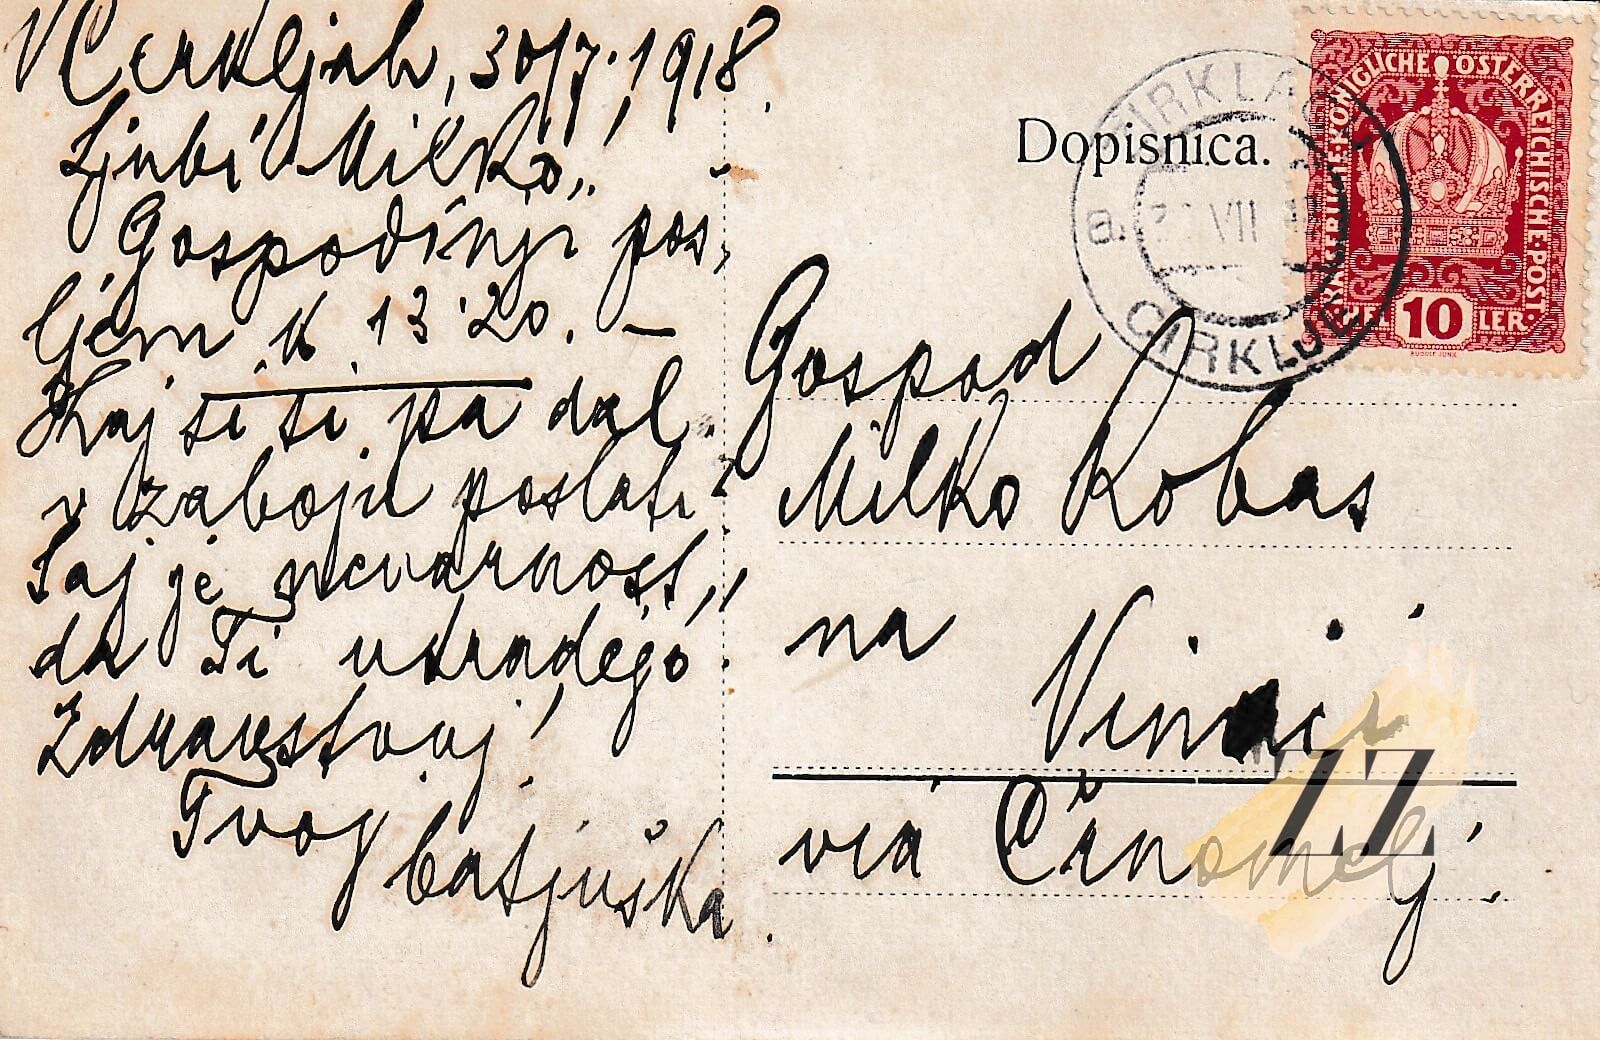 V Cerkljah, 30/7. 1918.
Ljubi Milko!
Gospodinji pos-
ljem K 13·20. —
Kaj si ti pa dal
v zaboju poslati?
Saj je nevarnost,
da Ti ukradejo.
Zdravstvuj!
Tvoj
batjuška.
Dopisnica.
Gospod
Milko Robas
na Vinici
via Črnomelj.
KAISERLICHE·KÖNIGLICHE·ÖSTERREICHISCHE·POST·
10
HEL LER
RUDOLF JUNK
CIRKLJE
a.
VII
ZZ